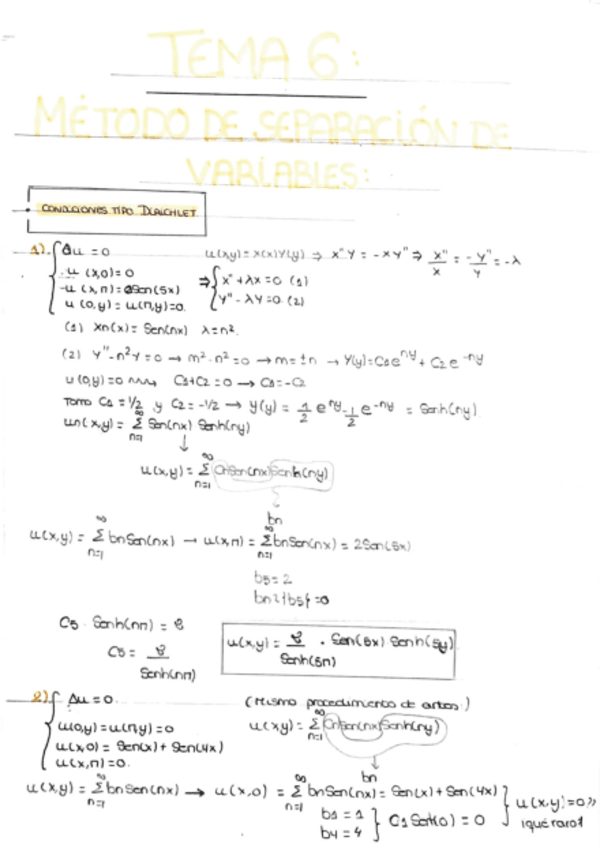 TEMA 6:
MÉTODO DE SEPARACIÓN DE
VARIABLES:
CONDICIONES TIPO DIRICHLET
1) { Δu = 0
u(x,0) = 0
u(x,π) = Sen(5x)
u(0,y) = u(π,y) = 0.
u(x,y) = X(x)Y(y) ⇒ X''Y = -XY'' ⇒ X''/X = -Y''/Y = -λ
⇒ { X'' + λX = 0 (1)
Y'' - λY = 0 (2)
(1) Xn(x) = Sen(nx) λ = n².
(2) Y'' - n²Y = 0 → m² - n² = 0 → m = ± n → Y(y) = C1e^ny + C2e^-ny
u(0,y) = 0 C1 + C2 = 0 → C1 = -C2
Tomo C1 = 1/2 y C2 = -1/2 → y(y) = 1/2 e^ny - 1/2 e^-ny = Senh(ny)
un(x,y) = ∞Σn=1 Sen(nx) Senh(ny)
↓
u(x,y) = ∞Σn=1 Cn Sen(nx) Senh(ny)
bn
u(x,y) = ∞Σn=1 bn Sen(nx) → u(x,π) = ∞Σn=1 bn Sen(nx) = 2Sen(5x)
b5 = 2
bn = 0
C5 · Senh(nπ) =
C5 = / Senh(nπ)
u(x,y) = / Senh(5π) · Sen(5x) Senh(5y)
2) { Δu = 0
u(0,y) = u(π,y) = 0
u(x,0) = Sen(x) + Sen(4x)
u(x,π) = 0.
(Mismo procedimiento de antes.)
u(x,y) = ∞Σn=1 Cn Sen(nx) Senh(ny)
↓
bn
u(x,y) = ∞Σn=1 bn Sen(nx) → u(x,0) = ∞Σn=1 bn Sen(nx) = Sen(x) + Sen(4x)
b1 = 1
b4 = 4 } C1 Senh(0) = 0 } u(x,y) = 0 ¡qué raro!